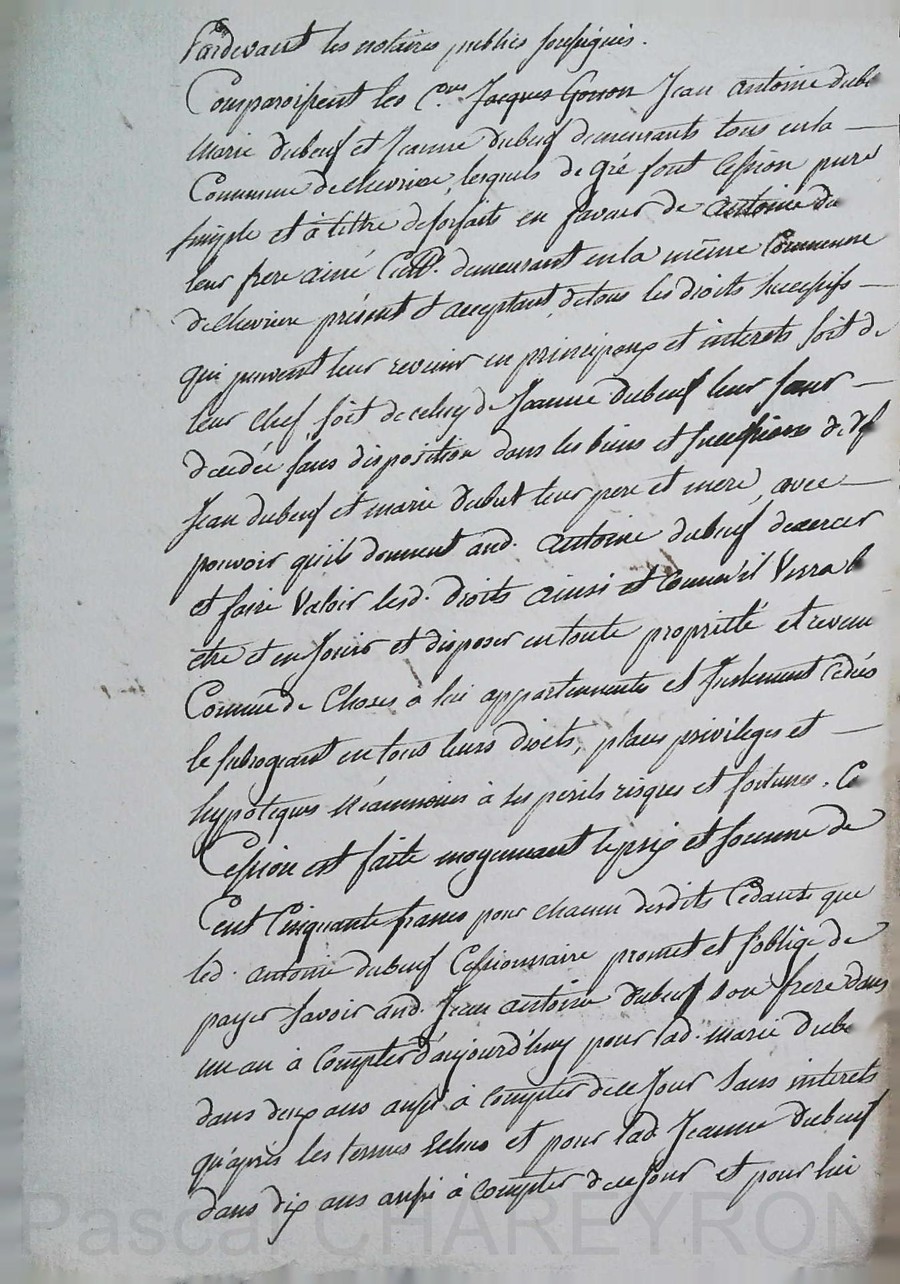 Pardevant les notaires publics soussignés.
Comparoissent les C.ens Jacques Gonon Jean antoine dube
Marie dubeuf et Jeanne dubeuf demeurants tous en la —
Commune de chevrieres, lesquels de gré font Cession pure
simple et à tittre de forfaits en faveur de antoine du
leur frere ainé demeurant en la même Commune
de chevriere présent et acceptant, de tous les droits successifs —
qui peuvent leur revenir en principaux et interets soit de
leur chef soit de celuy de Jeanne dubeuf leur soeur —
decedée sans disposition dans les biens et successions de
Jean dubeuf et marie leur pere et mere, avec —
pouvoir qu'ils donnent aud. antoine dubeuf dexercer
et faire Valoir lesd. droits ainsi et comme il Verra b
etre et en Jouir et disposer en toute propriété et revenu
Comme de Choses a lui appartenantes et Justement cedés
le subrogeant en tous leurs droits, places privileges et —
hypoteques Néanmoins à ses périls risques et fortunes. Ce
Cession est faite moyennant le prix et somme de
Cent Cinquante francs pour chacun desdits Cedants que
led. antoine dubeuf Cessionnaire promet et s'oblige de
payer savoir aud. Jean antoine dubeuf son frere dans
un an à compter d'aujourd'huy pour lad. marie dube
dans deux ans aussi à compter de ce Jour sans interets
qu'après les termes Echus et pour lad. Jeanne dubeuf
dans dix ans aussi à compter de ce Jour et pour lui
Pascal CHAREYRON